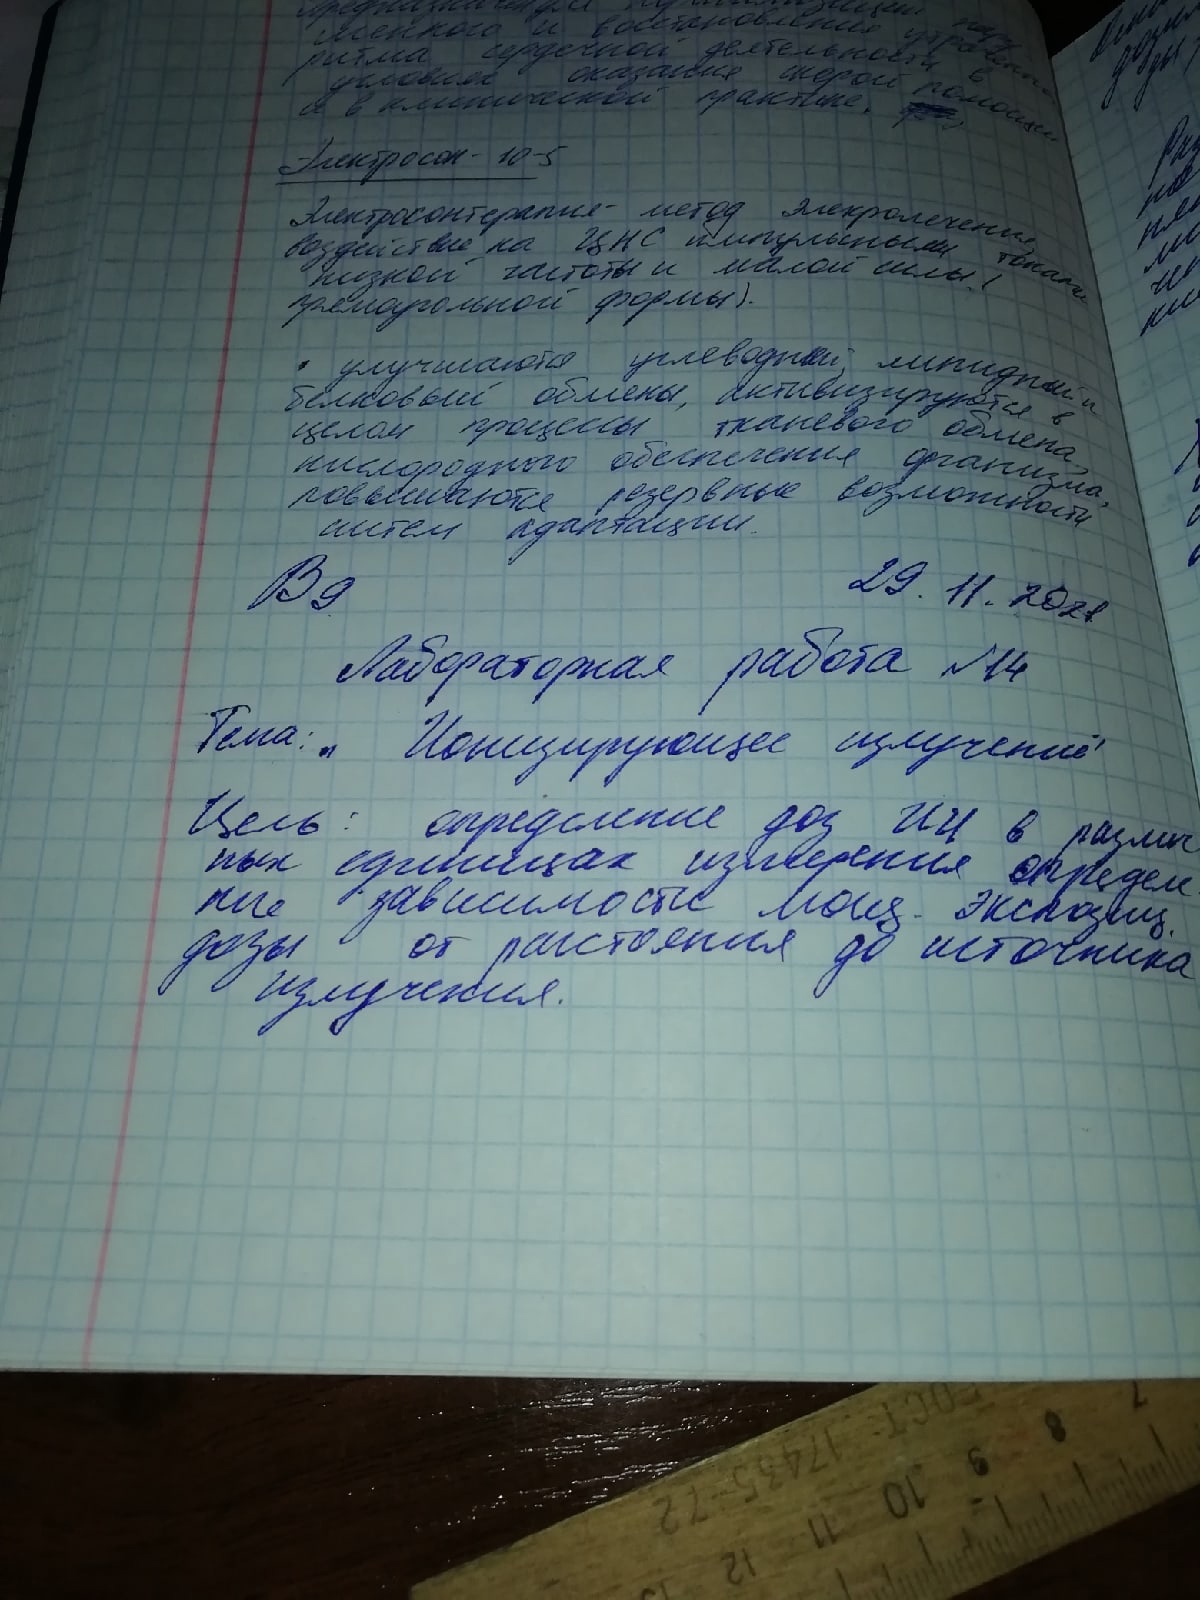 и восстановления
ритма сердечной деятельности в
условиях оказания скорой помощи
и в клинической практике.
Электросон - 10-5
Электросонтерапия - метод электролечения,
воздействие на ЦНС импульсными токами
низкой частоты и малой силы (
прямоугольной формы).
• улучшаются углеводный, липидный и
белковый обмены, активизируются в
целом процессы тканевого обмена,
кислородного обеспечения организма,
повышаются резервные возможности
систем адаптации.
В9 29.11.2021
Лабораторная работа №14
Тема: „ Ионизирующее излучение"
Цель: определение доз ИИ в различ
ных единицах измерения определе
ние зависимости мощ. экспозиц.
дозы от расстояния до источника
излучения.
ГОСТ 17435-72
7 8 9 10 11 12 13